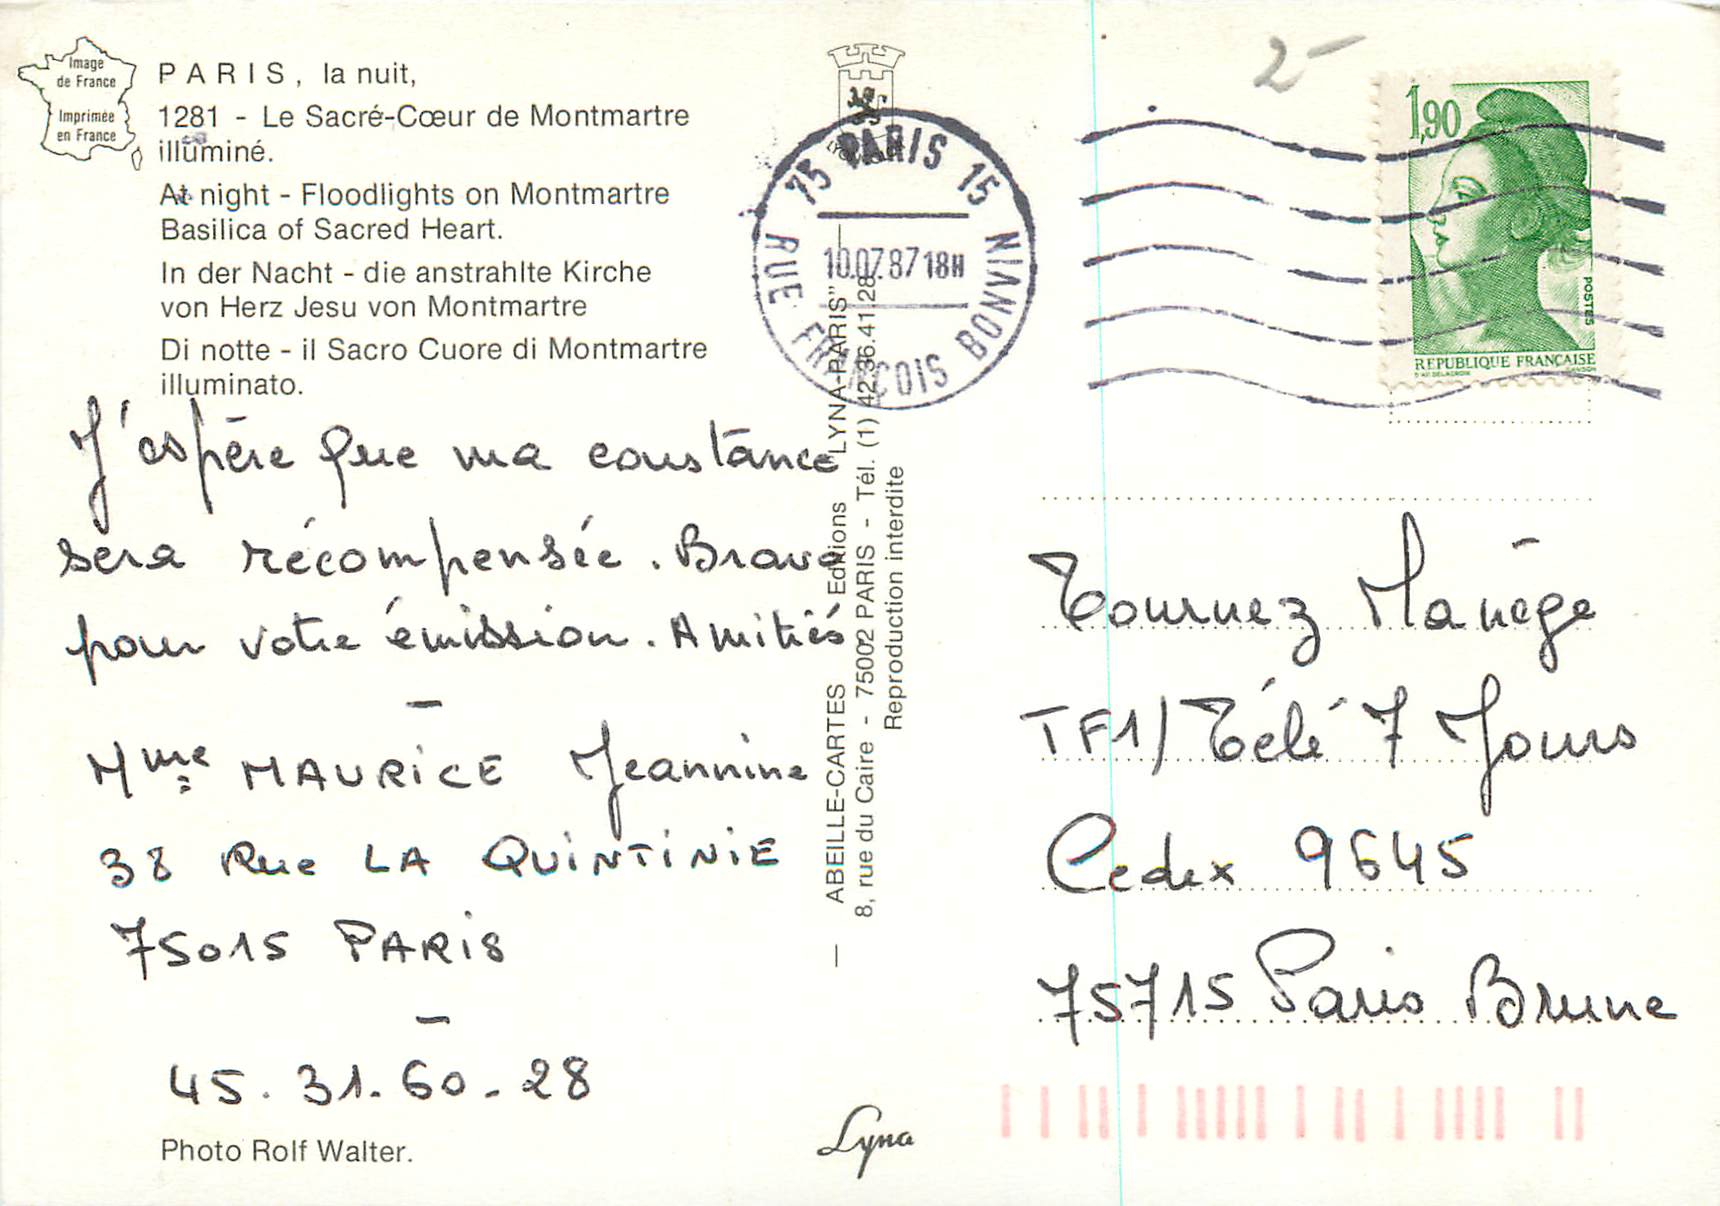 Image
de France
Imprimée
en France
PARIS, la nuit,
1281 - Le Sacré-Cœur de Montmartre
illuminé.
At night - Floodlights on Montmartre
Basilica of Sacred Heart.
In der Nacht - die anstrahlte Kirche
von Herz Jesu von Montmartre
Di notte - il Sacro Cuore di Montmartre
illuminato.
J'espère que ma constance
sera récompensée. Bravo
pour votre émission. Amitiés
—
Mme MAURICE Jeannine
38 Rue LA QUINTINIE
75015 PARIS
—
45. 31. 60 - 28
Photo Rolf Walter.
ABEILLE-CARTES Editions "LYNA-PARIS"
8, rue du Caire - 75002 PARIS - Tél. (1) 42.36.41.28
Reproduction interdite
Lyna
75 PARIS 15
10.07.87 18H
RUE FRANÇOIS BONVIN
2-
1,90
POSTES
REPUBLIQUE FRANÇAISE
D'AP. DELACROIX GANDON
Tournez Manège
TF1/Télé 7 Jours
Cedex 9645
75715 Paris Brune